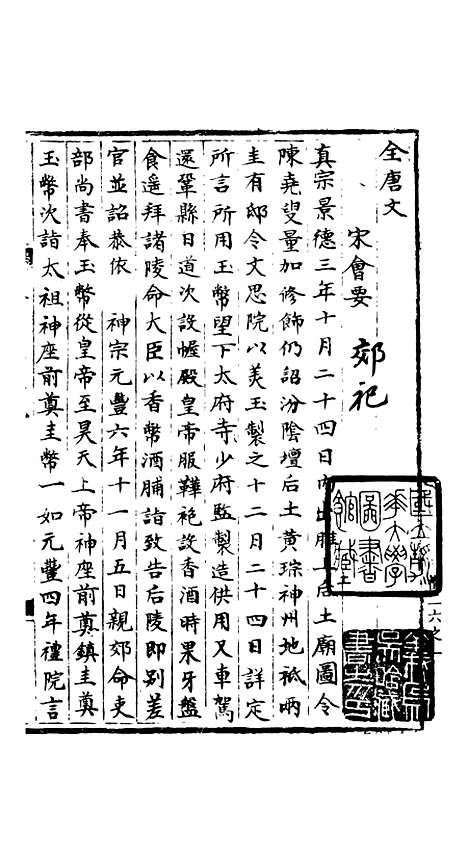 全唐文
宋會要
郊祀
真宗景德三年十月二十四日内出脽上后土廟圖令
陳堯叟量加修飾仍詔汾陰壇后土黄琮神州地祗兩
圭有邸令文思院以美玉製之十二月二十四日詳定
所言所用玉幣望下太府寺少府監製造供用又車駕
還鞏縣日道次設幄殿皇帝服鞾袍設香酒時果牙盤
食遥拜諸陵命大臣以香幣酒脯詣致告后陵即别差
官並詔恭依　神宗元豐六年十一月五日親郊命吏
部尚書奉玉幣從皇帝至昊天上帝神座前奠鎮圭奠
玉幣次詣太祖神座前奠圭幣一如元豐四年禮院言
六之一